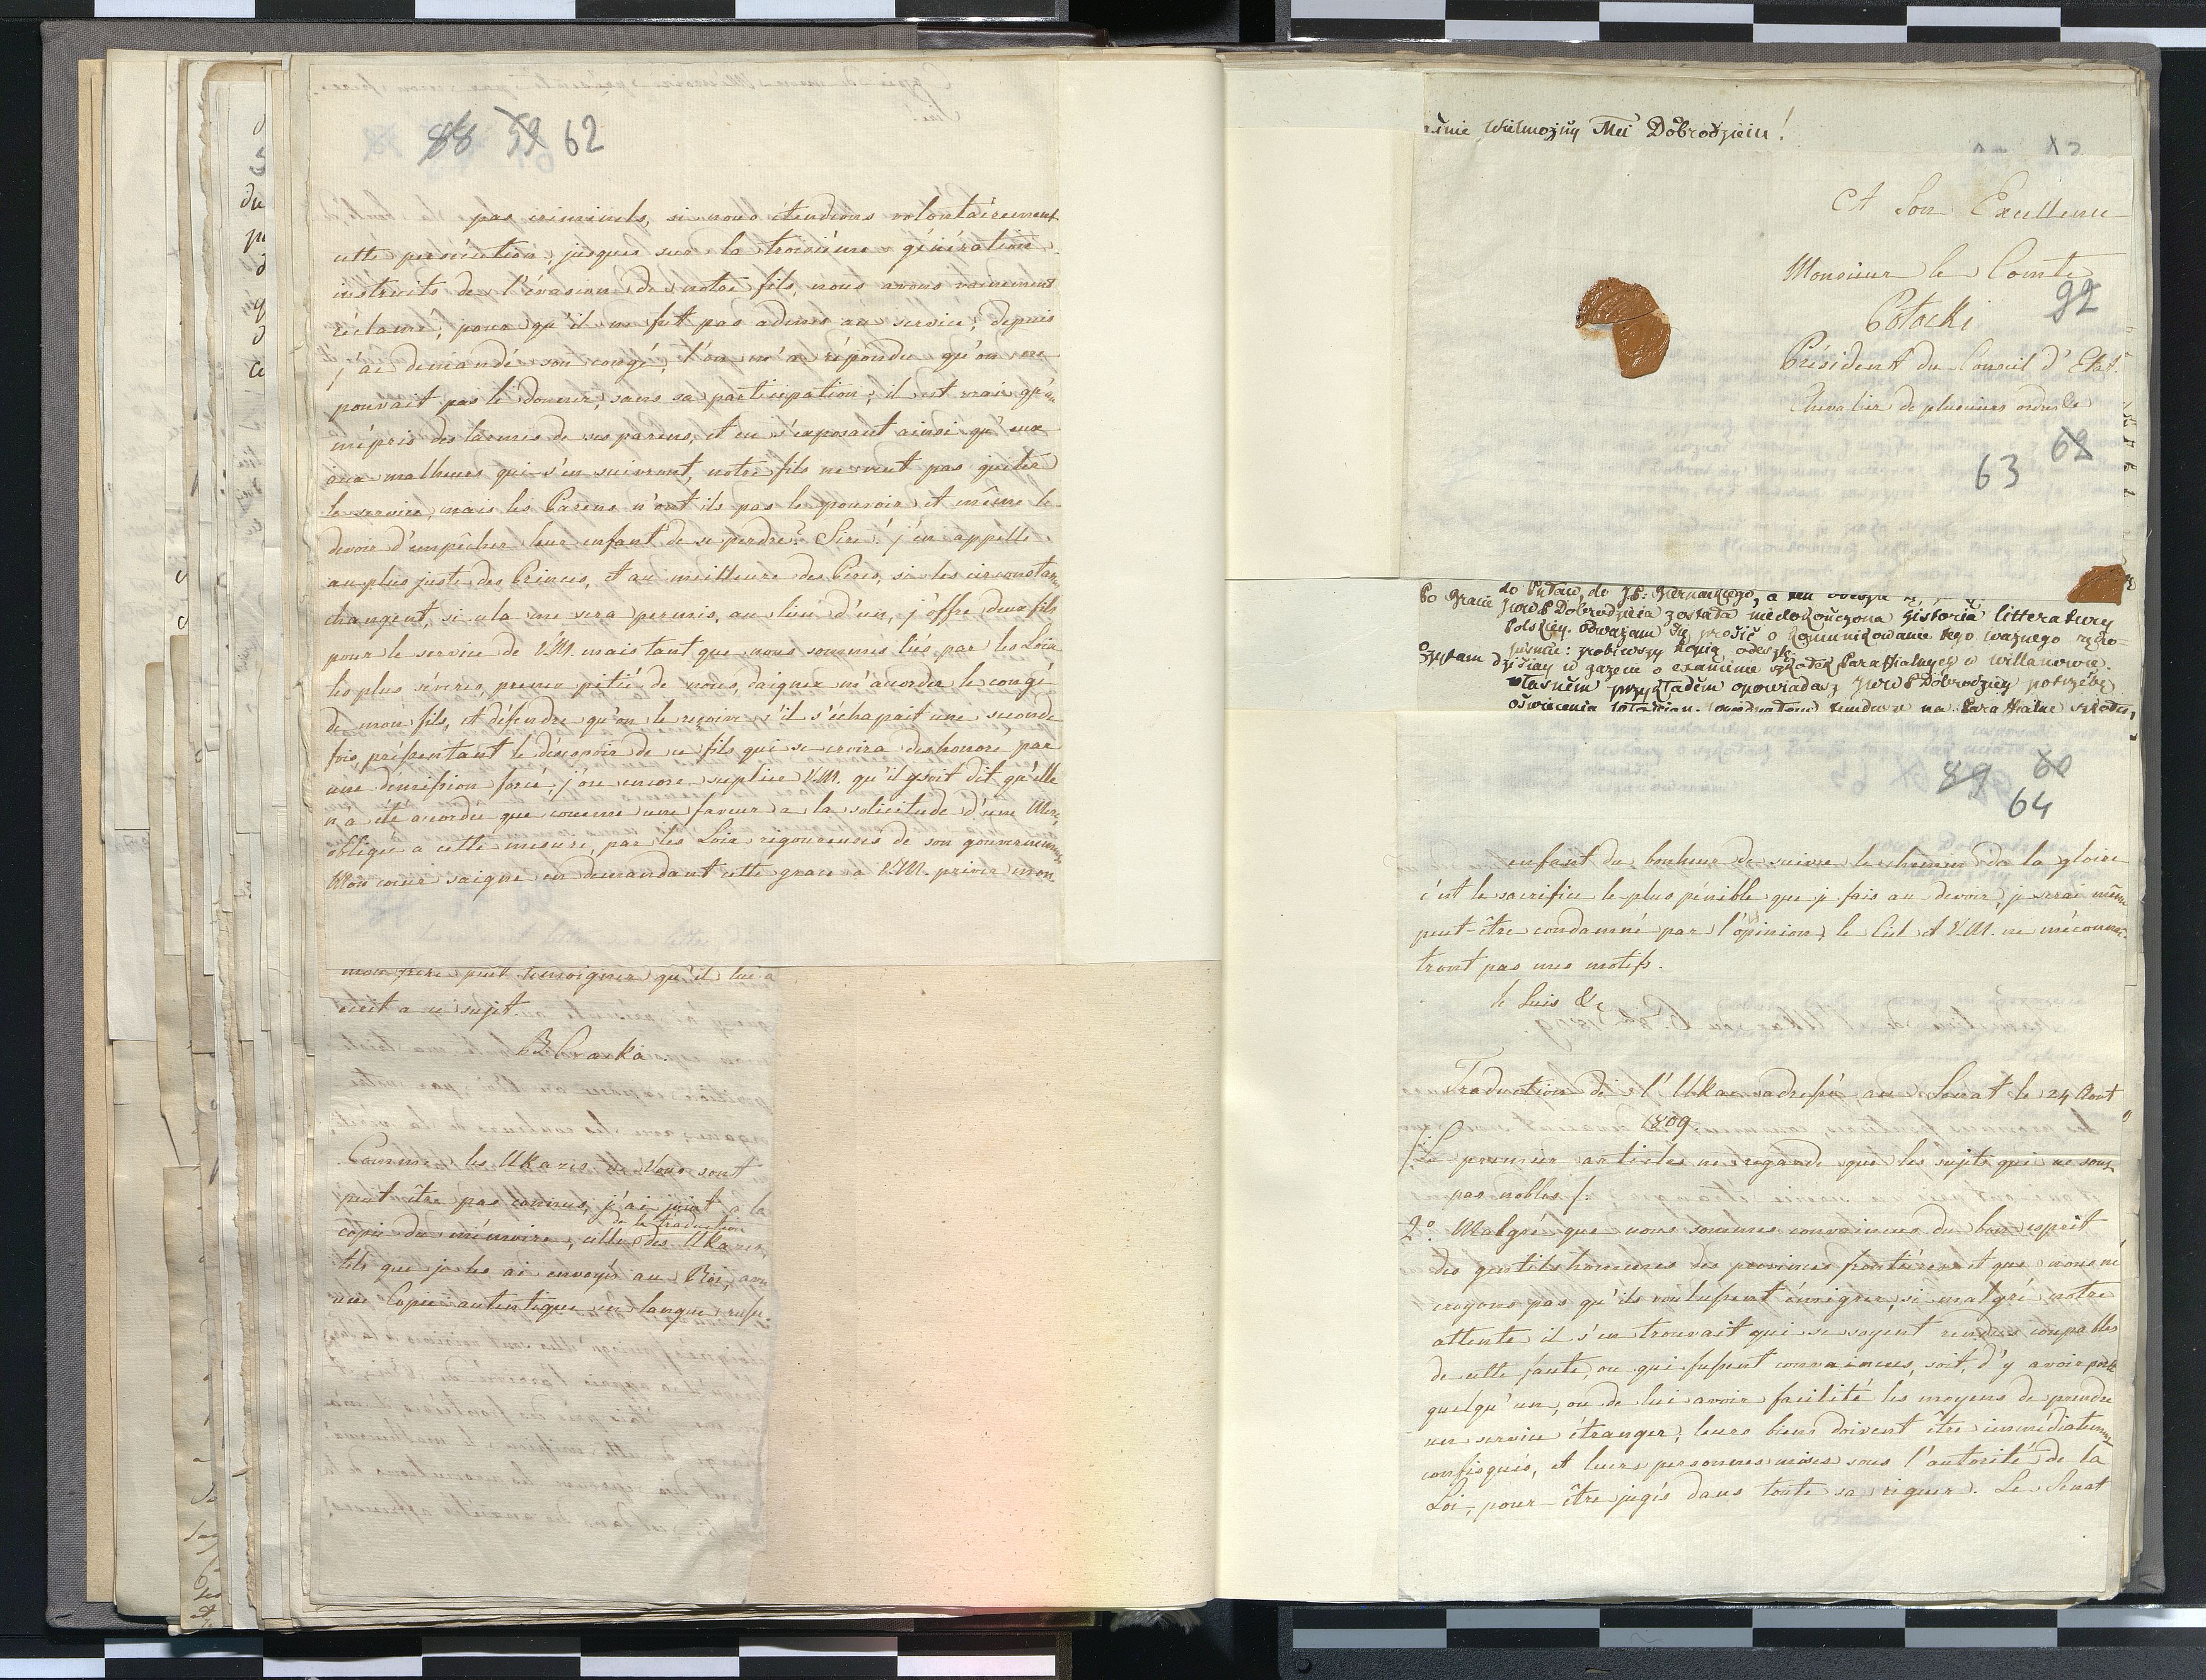 88 59 62
pas criminels, si nous étendions volontairement
cette persécution, jusques sur la troisiéme génération
instruits de l'évasion de notre fils, nous avons vainement
réclamé, pour qu'il ne fut pas admis au service, depuis
j'ai demandé son congé, l'on m'a répondu qu'on ne
pouvait pas le donner, sans sa participation; il est vrai qu'au
mépris des larmes de ses parens, et en s'exposant ainsi qu'eux
aux malheurs qui s'en suivront, notre fils ne veut pas quiter
le service, mais les Parens n'ont ils pas le pouvoir et même le
devoir d'empêcher leur enfant de se perdre? Sire! j'en appelle
au plus juste des Princes, et au meilleure des Peres, si les circonstan
changent, si cela me sera permis, au lieu d'un, j'offre deux fils
pour le service de V.M. mais tant que nous sommes liés par les Loix
les plus séveres, prenez pitié de nous, daignez m'acorder le congé
de mon fils, et défendre qu'on le reçoive s'il s'échapait une seconde
fois, présentant le désespoir de ce fils qui se croira deshonoré par
une démission forcé, j'ose encore suplier V.M. qu'il y soit dit qu'elle
n'a été acordée que comme une faveur a la solicitude d'une Mere,
obligée a cette mesure, par les Loix rigoureuses de son gouvernement
Mon cœur saigne en demandant cette grace a V.M. priver mon
mon pere peut temoigner qu'il lui a
écrit a ce sujet.
B. Czacka.
Comme les Ukazes ne Vous sont
peut être pas connus, j'ai joint a la
de la traduction
copie du mémoire, celle des Ukazes,
tels que je les ai envoyés au Roi, avec
une Copie autentique en langue russe
śnie Wielmożny Mći Dobrodzieiu!
A Son Excellence
Monsieur le Comte
92
Potocki
Président du Conseil d'Etat.
Chevalier de plusieurs ordres
62
63
Po Gracie JWWP Dobrodzieia została niedokończona Historia litteratury
Polskiey. Odważam się prosić o komunikowanie tego ważnego ręko-
pismu: zrobiwszy kopią odeszlę.
Czytam dzisiay w gazecie o examinie szkołek Paraffialnych w Willanowie.
własnem przykładem opowiadasz JWWP Dobrodziey potrzebę
89 60
64
enfant du bonheur de suivre le chemin de la gloire
c'est le sacrifice le plus pénible que je fais au devoir, je serai même
peut-être condamné par l'opinion, le Ciel et V.M. ne méconnai-
tront pas mes motifs.
Je suis &c
Traduction de l'Ukaz adressé au Senat le 24 Aout
1809.
/: Le premier article ne regarde que les sujets qui ne sont
pas nobles /:
2º. Malgré que nous sommes convaincus du bon esprit
des gentilshommes des provinces frontieres et que nous ne
croyons pas qu'ils voulussent émigrer, si malgré notre
attente il s'en trouvait qui se soyent rendus coupables
de cette faute, ou qui fussent convaincus, soit, d'y avoir porté
quelqu'un, ou de lui avoir facilité les moyens de prendre
un service étranger, leurs biens doivent être immédiatement
confisqués, et leurs personnes mises sous l'autorité de la
Loi, pour être jugés dans toute sa rigueur. Le Senat